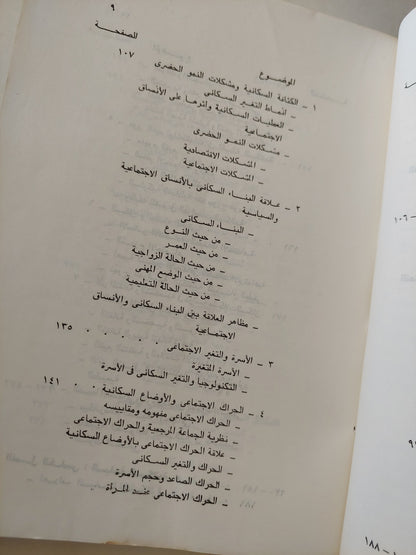 ٩
الموضـــوع
الصفحـــة
١ – الكثافة السكانية ومشكلات النمو الحضرى
١٠٧
– أنماط التغير السكانى
– المعطيات السكانية وأثرها على الأنساق
الاجتماعية
– مشكلات النمو الحضرى
– المشكلات الاقتصادية
– المشكلات الاجتماعية
٢ – علاقة البناء السكانى بالأنساق الاجتماعية
والسياسية
– البناء السكانى
– من حيث النوع
– من حيث العمر
– من حيث الحالة الزواجية
– من حيث الوضع المهنى
– من حيث الحالة التعليمية
– مظاهر العلاقة بين البناء السكانى والأنساق
الاجتماعية
٣ – الأسرة والتغير الاجتماعى . . . . . ١٣٥
– الأسرة المتغيرة
– التكنولوجيا والتغير السكانى فى الأسرة
٤ – الحراك الاجتماعى والأوضاع السكانية . . ١٤١
– الحراك الاجتماعى مفهومه ومقاييسه
– نظرية الجماعة المرجعية والحراك الاجتماعى
– علاقة الحراك الاجتماعى بالأوضاع السكانية
– الحراك والتغير السكانى
– الحراك الصاعد وحجم الأسرة
– الحراك الاجتماعى عند المرأة
١٠٦ –
– ١٨٨